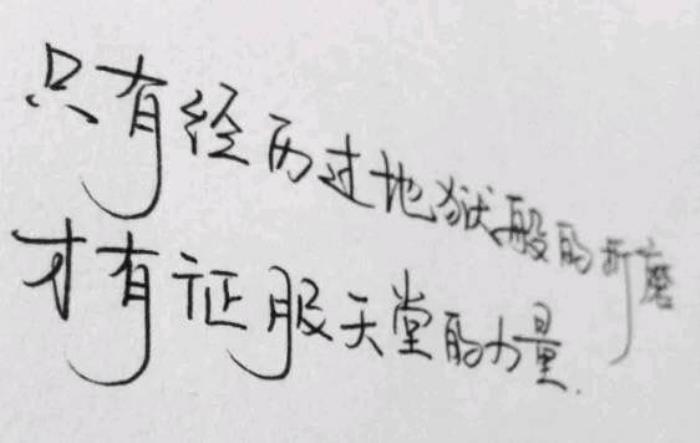 只有经历过地狱般的折磨
才有证服天堂的力量.